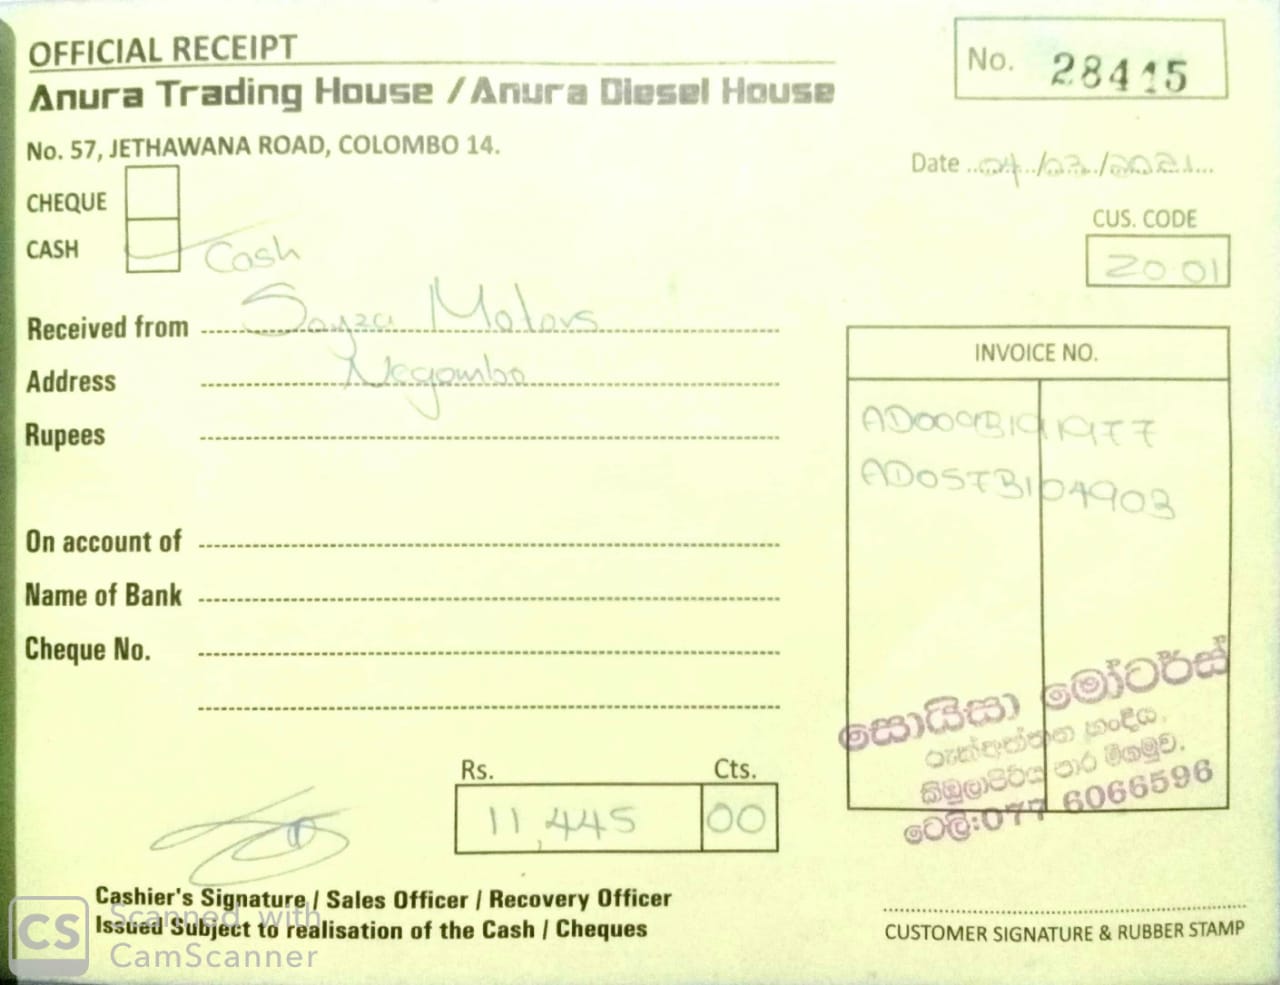 OFFICIAL RECEIPT
Anura Trading House / Anura Diesel House
No. 57, JETHAWANA ROAD, COLOMBO 14.
No. 28415
Date 04/03/2021
CUS. CODE
20 01
CHEQUE
CASH Cash
Received from Soyza Motors
Address Negombo
Rupees
On account of
Name of Bank
Cheque No.
INVOICE NO.
AD009B191977
AD057B104903
සොයිසා මෝටර්ස්
හංදිය,
කිඹුලාපිටිය පාර මීගමුව.
ටෙලි:077 6066596
Rs. Cts.
11,445 00
Cashier's Signature / Sales Officer / Recovery Officer
Issued Subject to realisation of the Cash / Cheques
CUSTOMER SIGNATURE & RUBBER STAMP
CS Scanned with
CamScanner